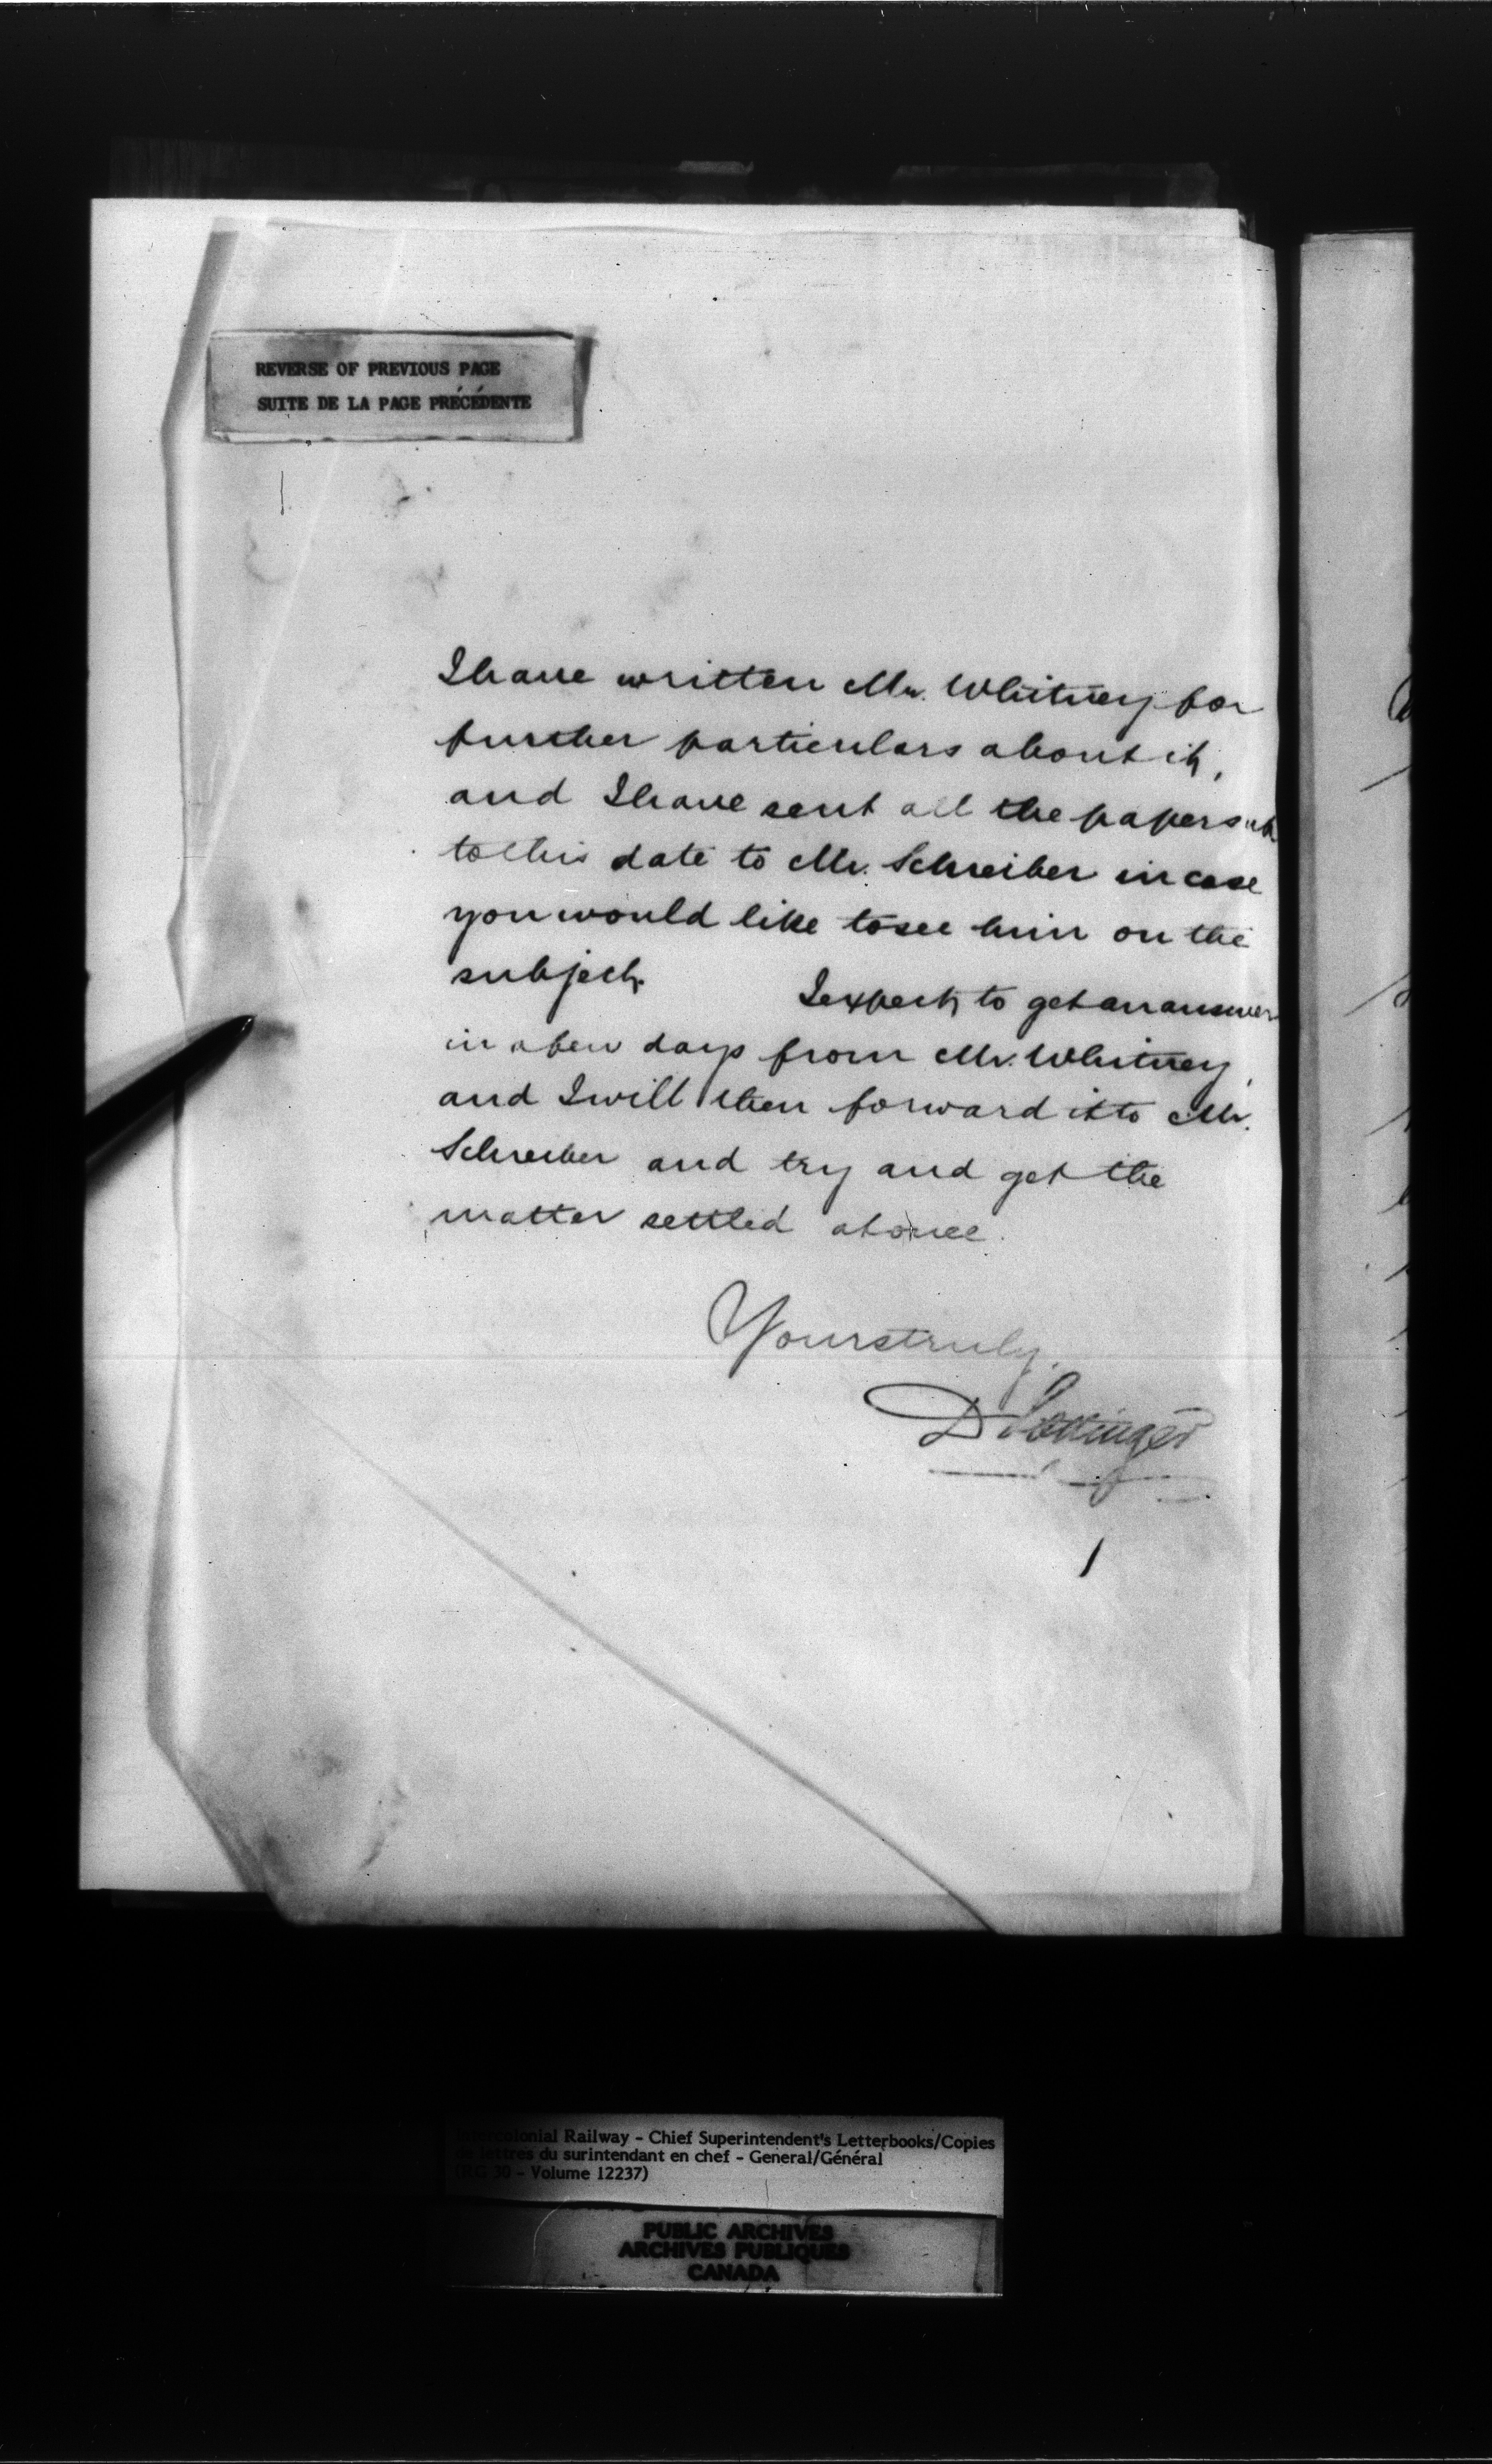 REVERSE OF PREVIOUS PAGE
SUITE DE LA PAGE PRÉCÉDENTE
I have written Mr. Whitney for
further particulars about it,
and I have sent all the papers up
to this date to Mr. Schreiber in case
you would like to see him on the
subject.
I expect to get an answer
in a few days from Mr. Whitney,
and I will then forward it to Mr.
Schreiber and try and get the
matter settled at once.
Yours truly,
D Pottinger
Intercolonial Railway - Chief Superintendent's Letterbooks/Copies
de lettres du surintendant en chef - General/Général
(RG 30 - Volume 12237)
PUBLIC ARCHIVES
ARCHIVES PUBLIQUES
CANADA